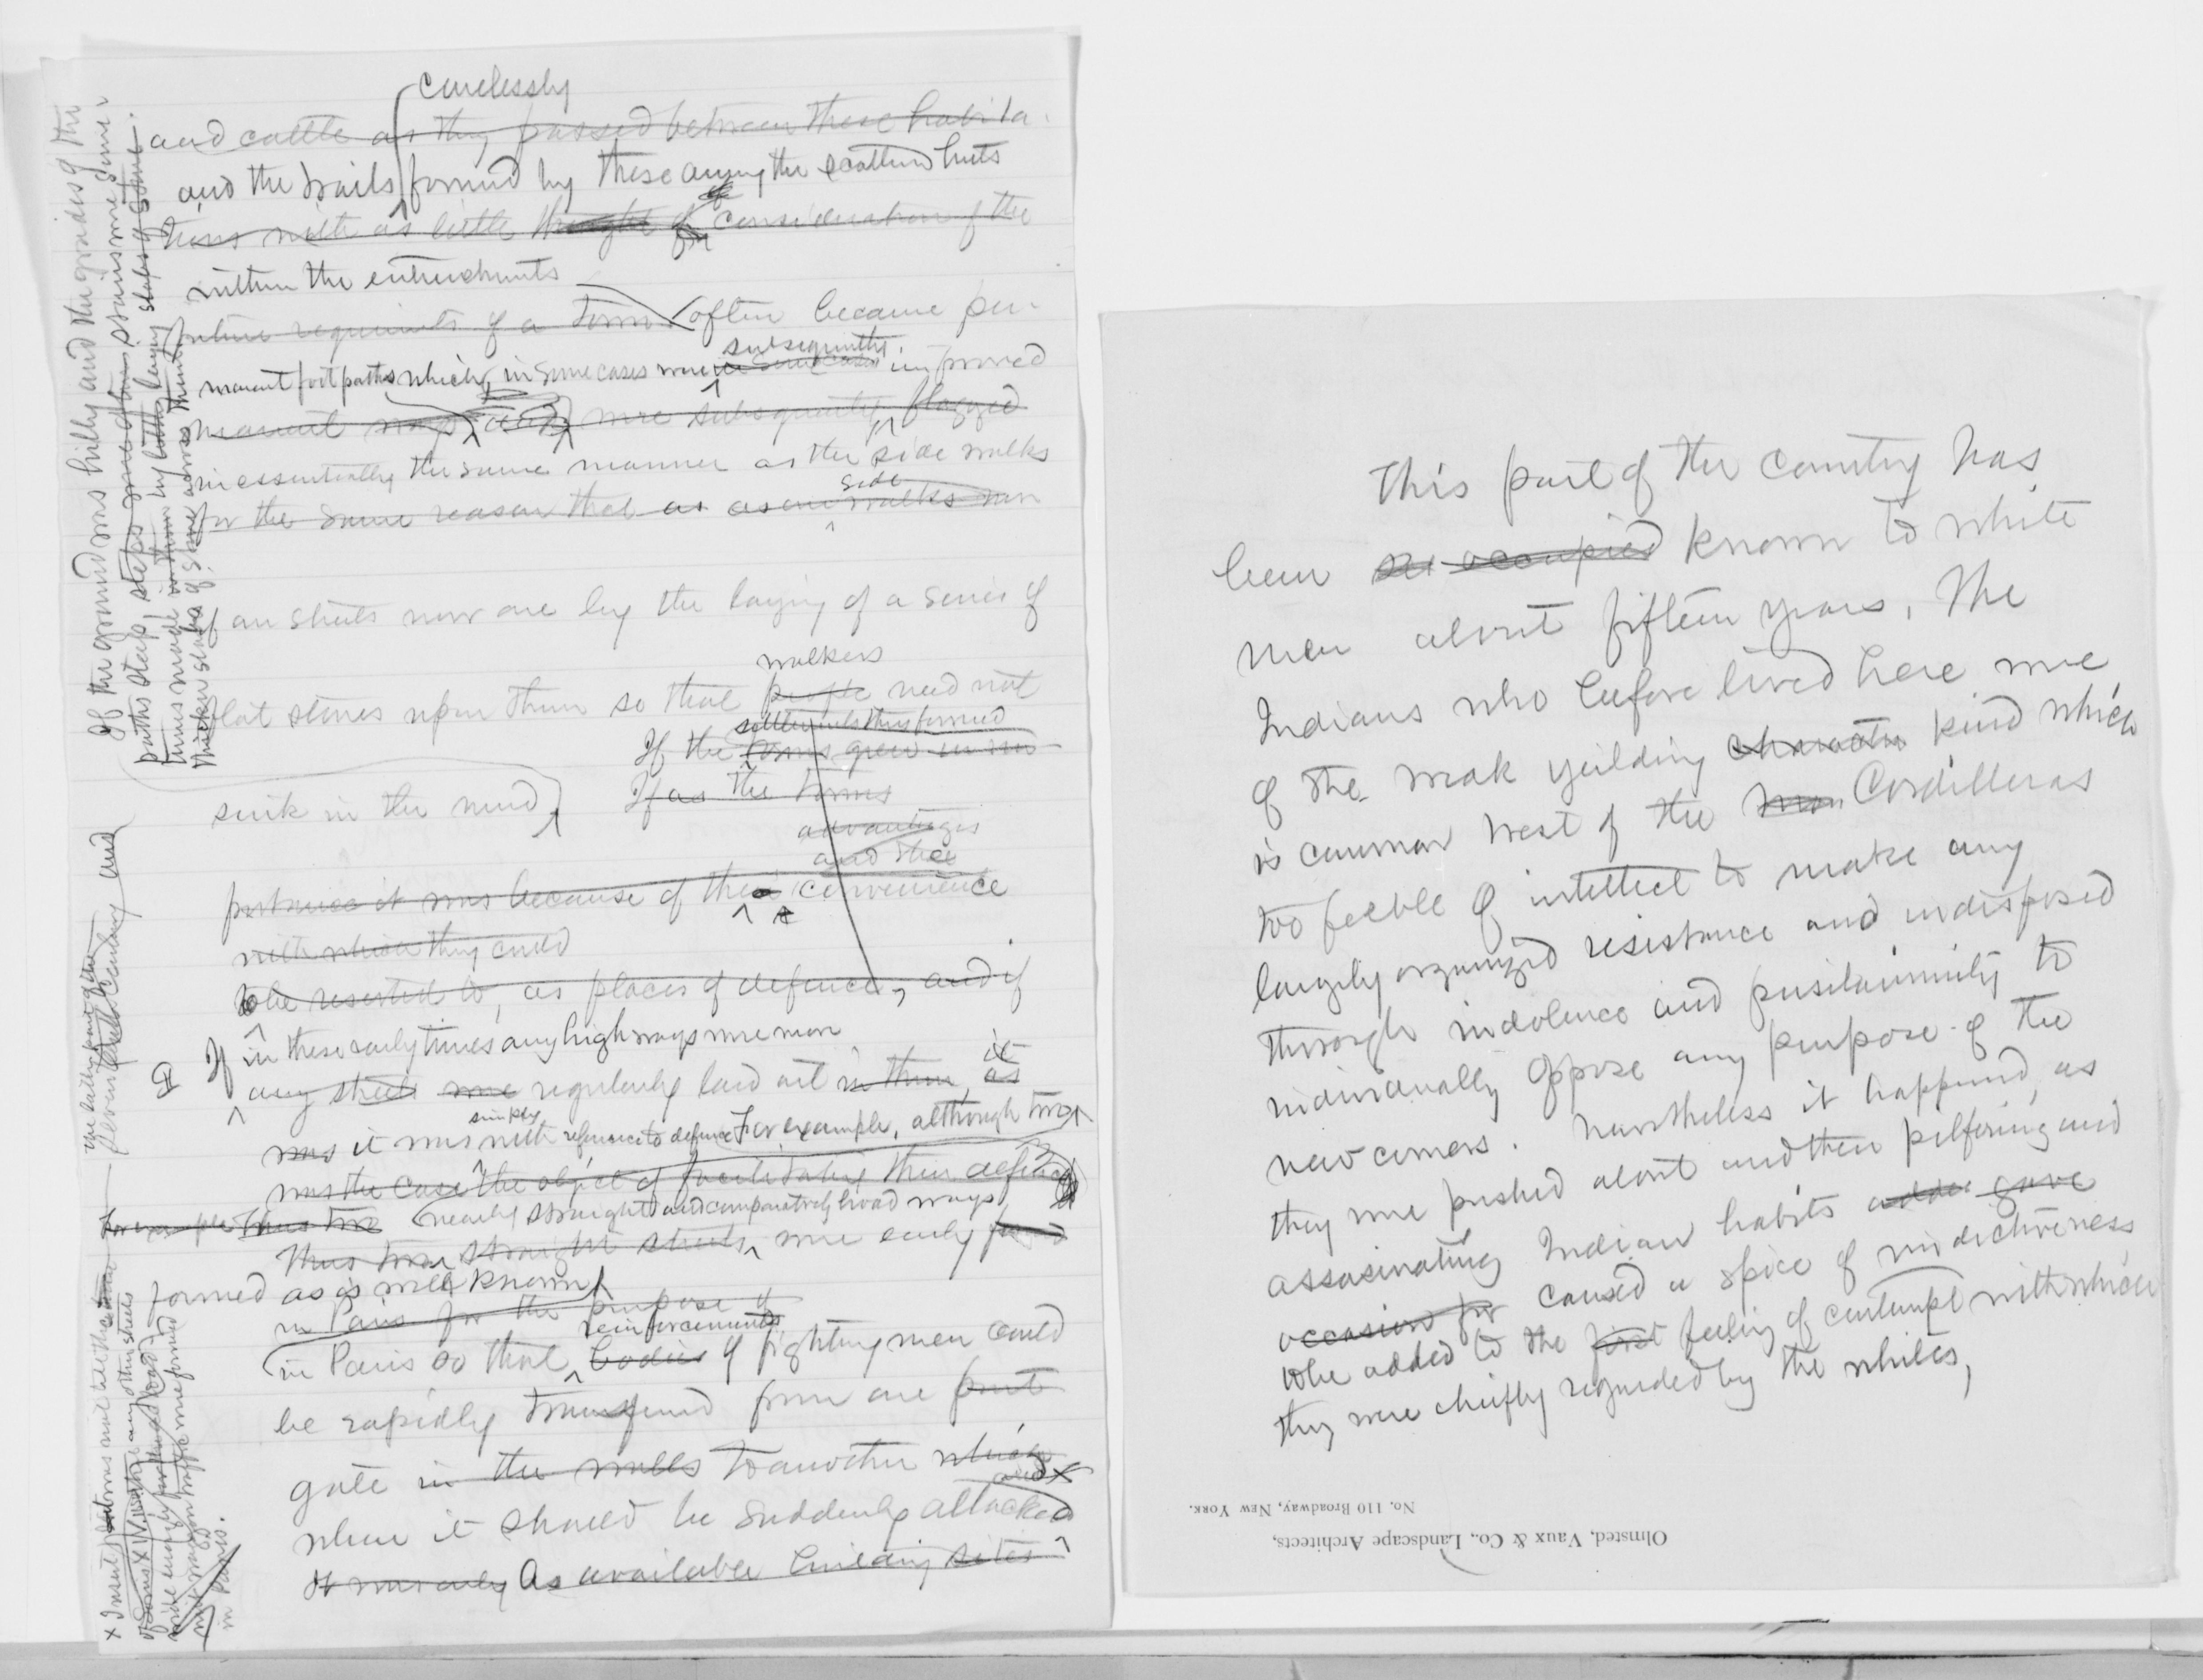 carelessly
and cattle as they passed between these habita-
and the trails formed by these among the scattered huts
tions with as little thought of consideration of the
within the entrenchments
future requirements of a town often became per-
subsequently
manent foot paths which, in some cases were in some cases improved
manent ways were subsequently flagged
in essentially the same manner as the side walks
side
for the same reason that as as our walks now
of our streets now are by the laying of a series of
walkers
flat stones upon them so that people need not
settlements thus formed
If the towns grew in im
sink in the mud If as the towns
advantages
and the
portance it was because of their convenience
with which they could
to be resorted to, as places of defence, and if
If in these early times any highways were more
any streets were regularly laid out in them, it as
simply
was it was with reference to defence For example, although two
was the case the object of facilitating their defence
For example Thus two nearly straight and comparatively broad ways
Thus two straight streets were early
formed as is well known
in Paris for the purpose of
reinforcements
in Paris so that bodies of fighting men could
be rapidly transferred from one point
gate in the walls to another which
and x
when it should be suddenly attacked
It was only As available building sites
If the ground was hilly and the grades of the
paths steep, steps were often stairs were some-
times made in them by laying slabs of stone
thicker slabs of stone across them
the early part of the
Seventeenth Century and
x Insert but it was not till the
of Louis XIV that any other streets
wide enough for
wagon traffic were formed
in Paris.
This part of the country has
been so occupied known to white
men about fifteen years. The
Indians who before lived here were
of the weak yeilding character kind which
is common west of the Cordilleras
too feeble of intellect to make any
largely organized resistance and indisposed
through indolence and pusilanimity to
individually oppose any purpose of the
new comers. Nevertheless it happened, as
they were pushed about and their pilfering and
assasinating Indian habits gave
occasion for caused a spice of vindictiveness
to be added to the first feeling of contempt with which
they were chiefly regarded by the whites,
Olmsted, Vaux & Co., Landscape Architects,
No. 110 Broadway, New York.